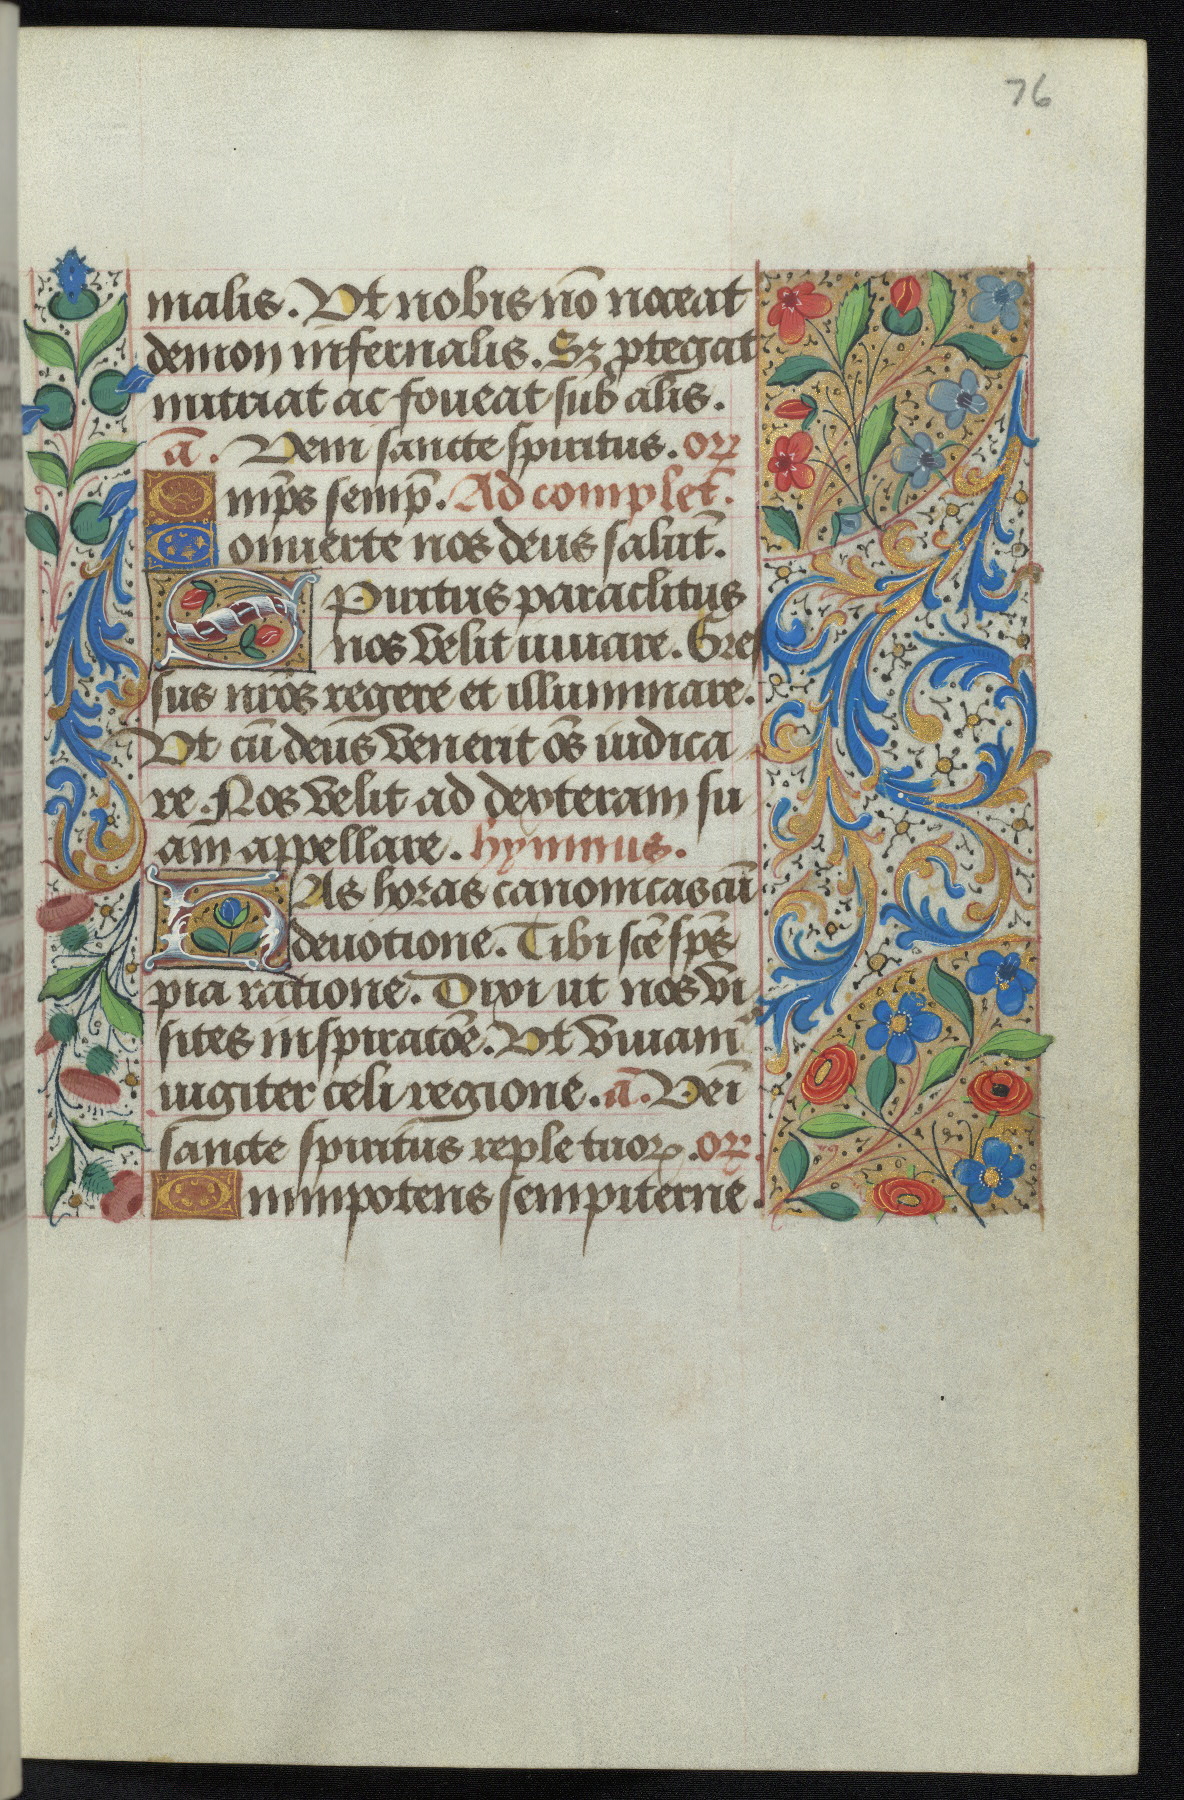 76
malis. Ut nobis nō noceat
demon infernalis. Sꝫ ꝓtegat
nutriat ac foveat sub alis.
ā. Veni sancte spiritus. orꝝ
Omp̄s semp̄. Ad complet̄.
Converte nos deus salut̄.
Spiritus paraclitus
nos velit iuuare. Gres
sus nr̄os regere et illuminare.
Ut cū deus venerit oēs iudica
re. Nos velit ad dexteram su
am appellare. hymnus.
HAs horas canonicas cū
deuotione. Tibi scē sp̄s
pia ratione. Dixi ut nos vi
sites inspiratōe. Ut viuam᷒
iugiter celi regione. ā. Venī
sancte spiritus reple tuoꝝ. orꝝ.
Omnipotens sempiterne.